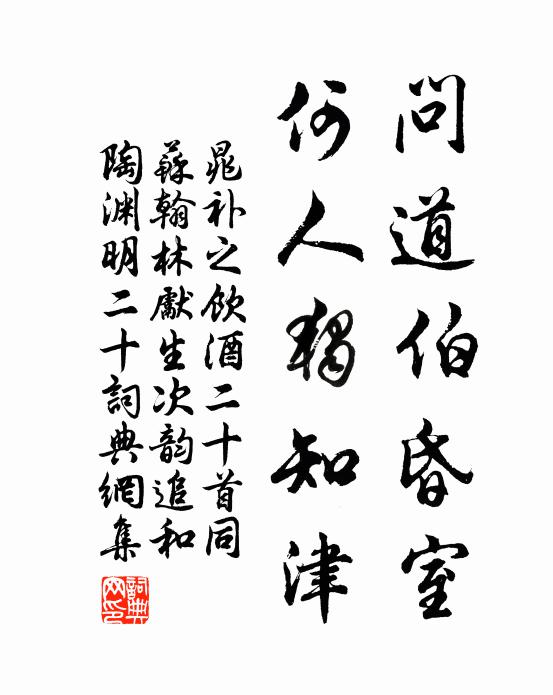 問道伯昏室
何人獨知津
晁补之飲酒二十首同
蘇翰林獻生次韵追和
陶渊明二十詞典網集
詞典网印